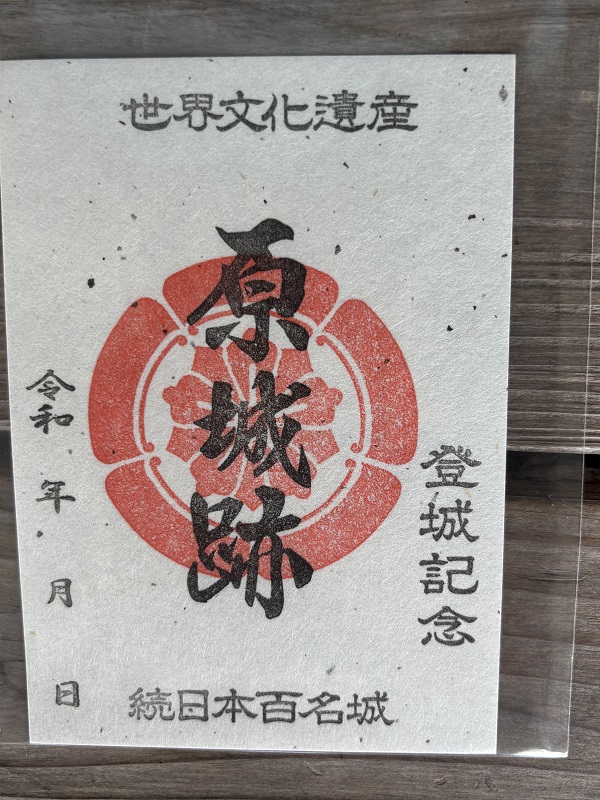 世界文化遺産
登城記念
原城跡
令和 年 月 日
続日本百名城